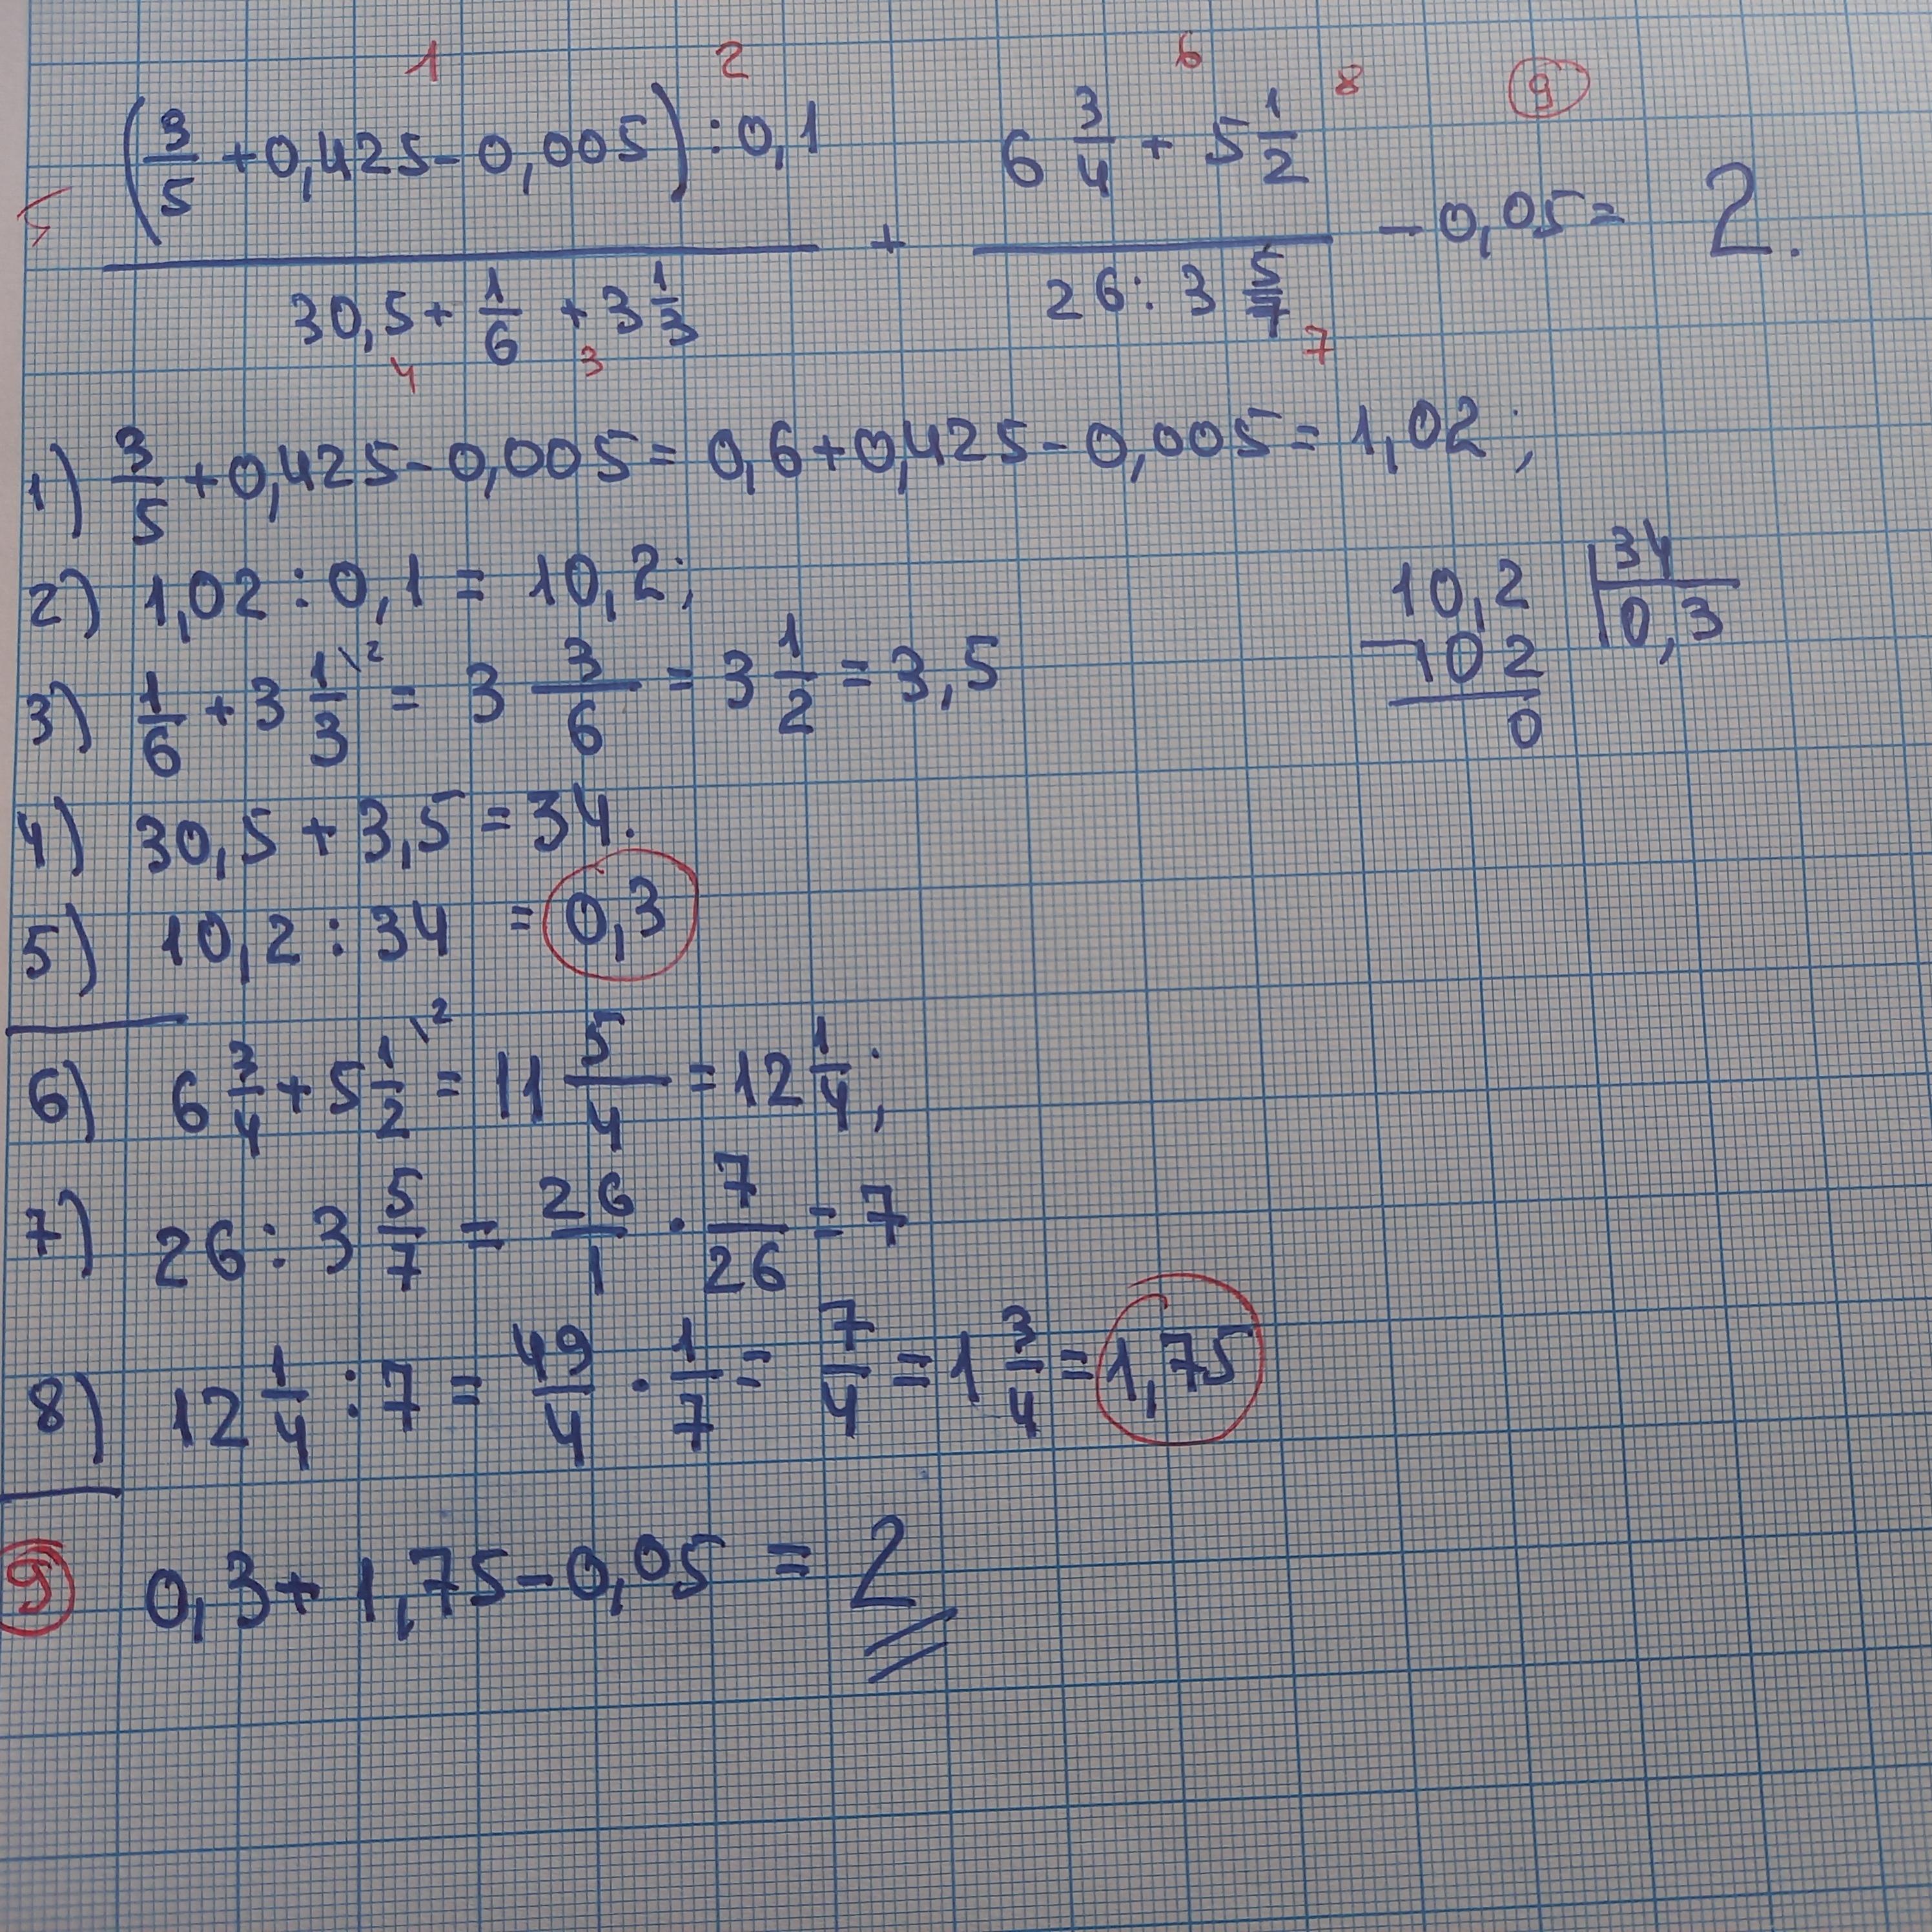 1 2 6 8 9
(3/5 + 0,425 - 0,005) : 0,1 + 6 3/4 + 5 1/2 - 0,05 = 2.
5
30,5 + 1/6 + 3 1/3 26 : 3 5/7
4 3 7
1) 3/5 + 0,425 - 0,005 = 0,6 + 0,425 - 0,005 = 1,02;
2) 1,02 : 0,1 = 10,2;
10,2 | 34
- 102 | 0,3
0
3) 1/6 + 3 1/3 \2 = 3 3/6 = 3 1/2 = 3,5
4) 30,5 + 3,5 = 34.
5) 10,2 : 34 = 0,3
6) 6 3/4 + 5 1/2 \2 = 11 5/4 = 12 1/4;
7) 26 : 3 5/7 = 26/1 · 7/26 = 7
8) 12 1/4 : 7 = 49/4 · 1/7 = 7/4 = 1 3/4 = 1,75
9 0,3 + 1,75 - 0,05 = 2